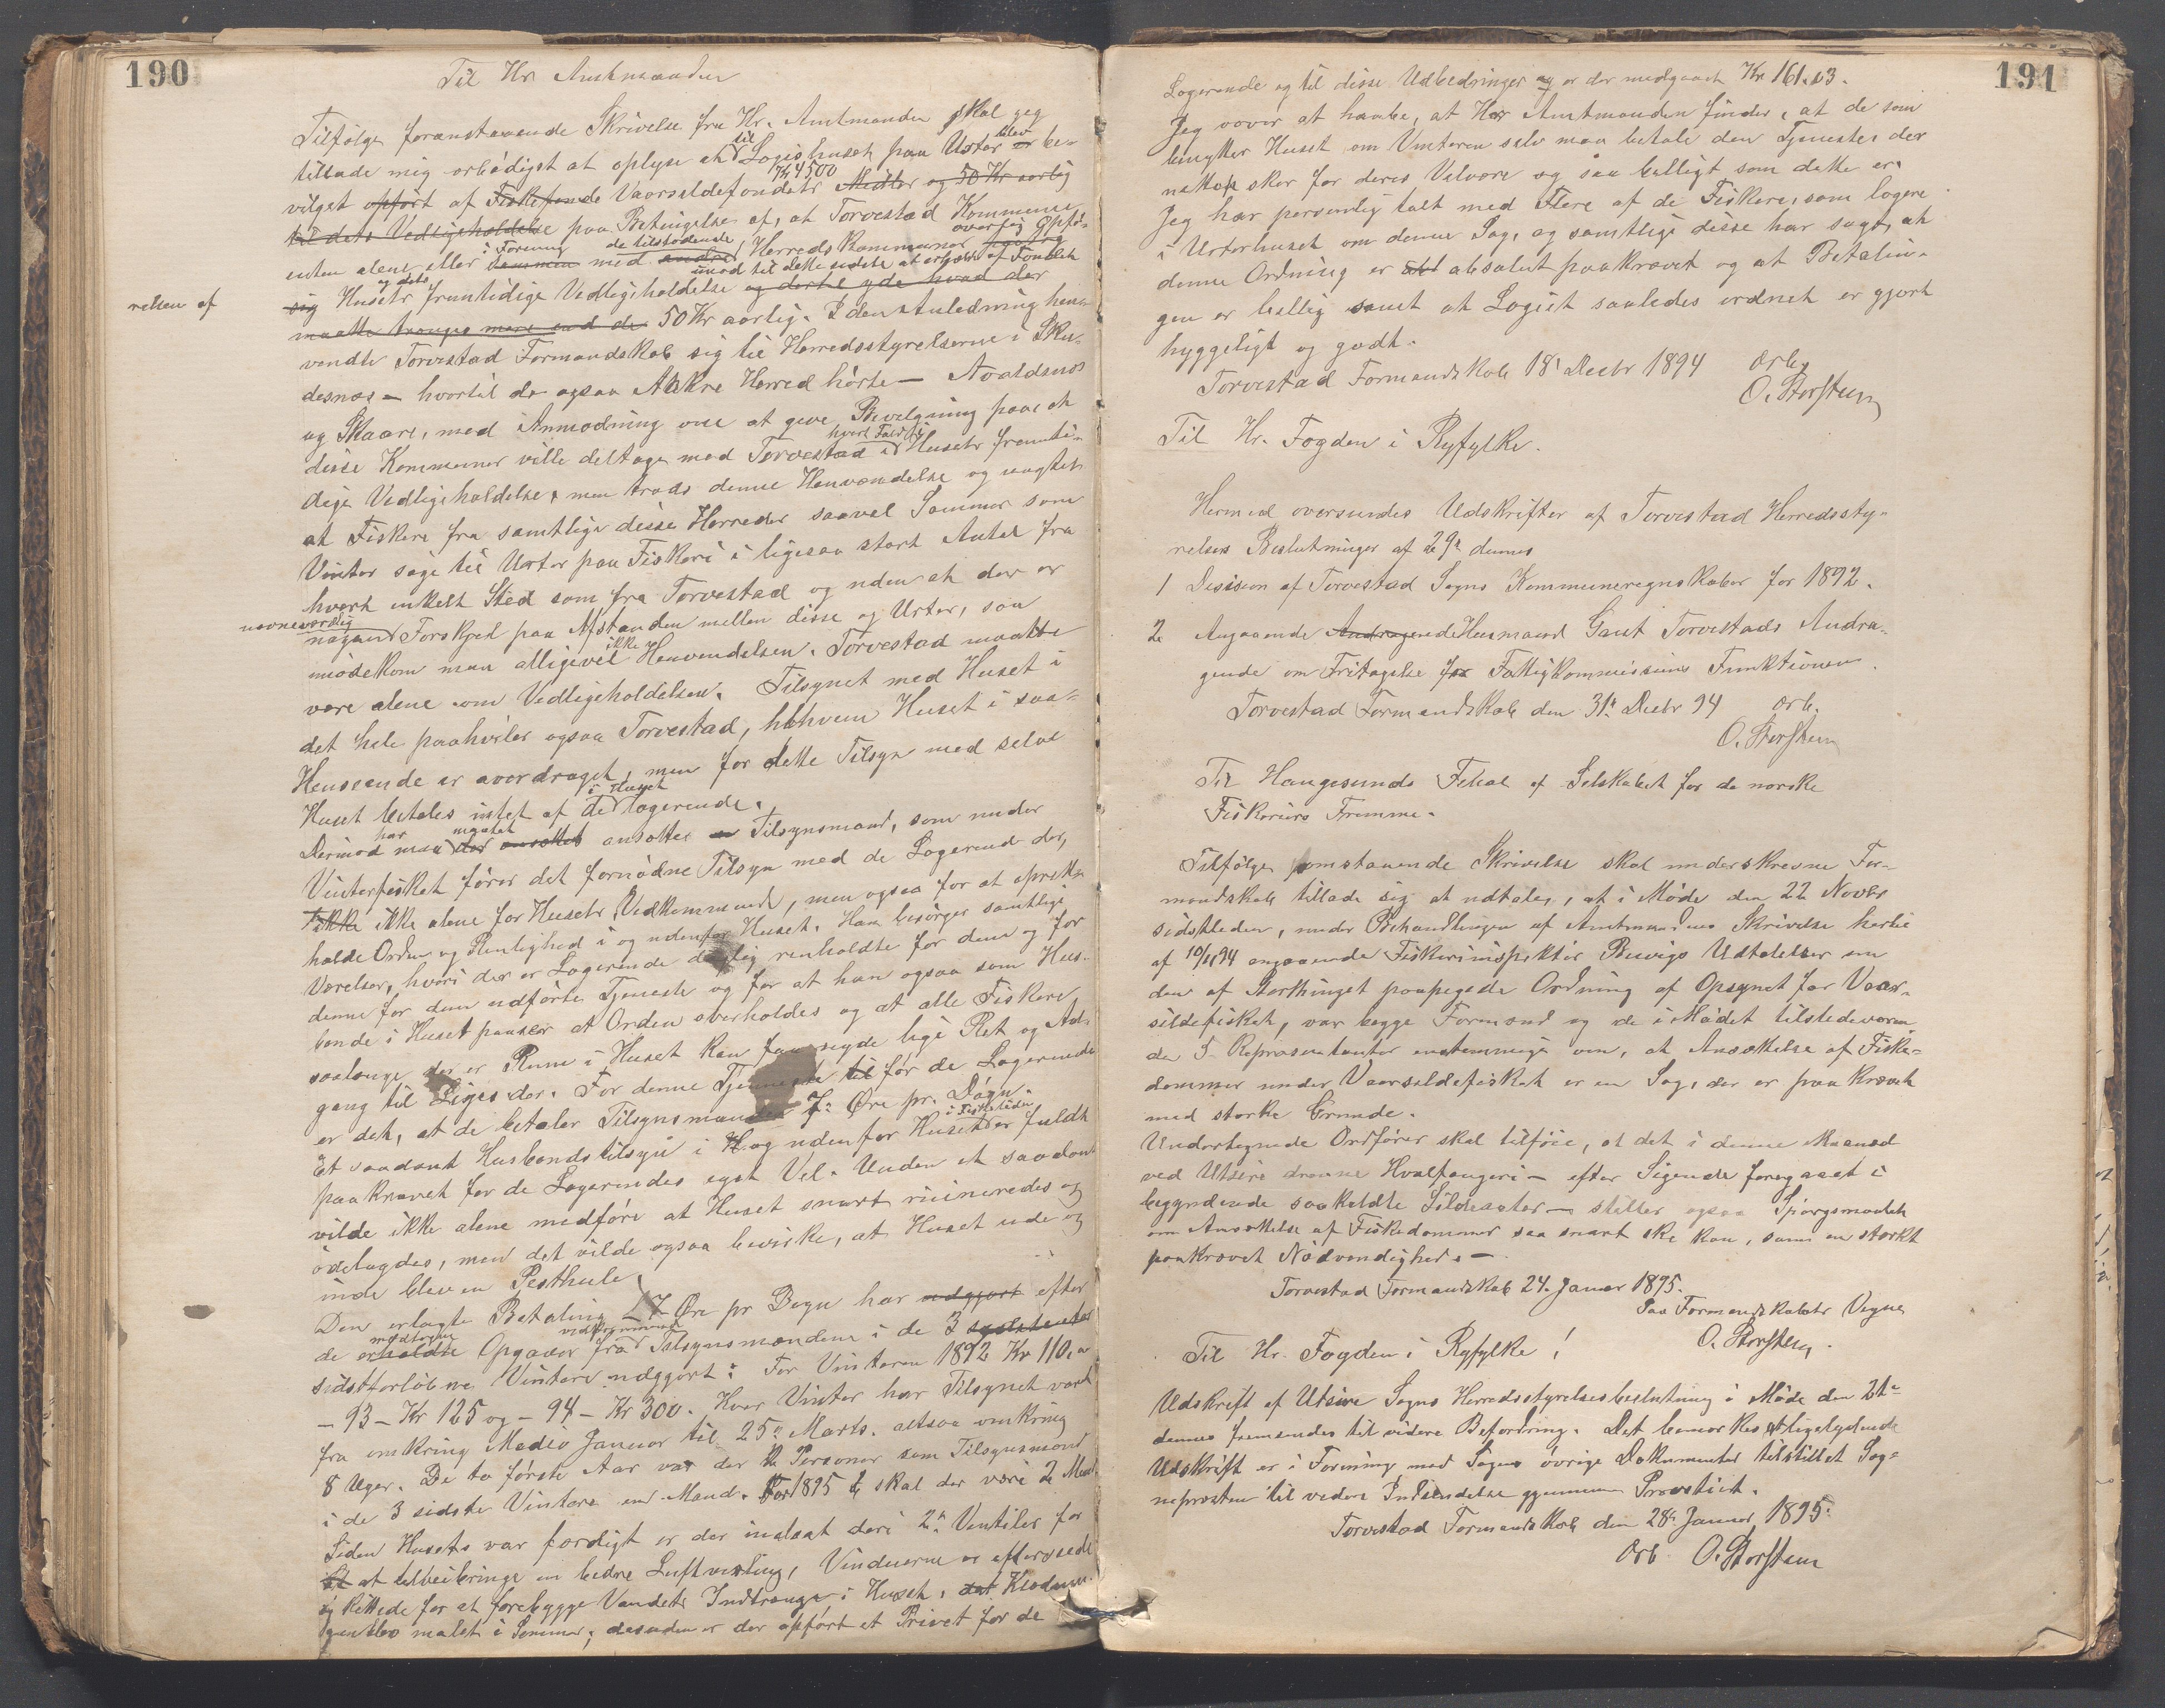 190
Til Hr Amtmanden
Tilfölge foranstaaende Skrivelse fra Hr. Amtmanden skal jeg
tillade mig ærbödigst at oplyse at til Logishuset paa Urter er blev be-
vilget opfört af Fiskefonds Vaarsildefondets Kr 4500 Midler og 50 Kr aarlig
til dets Vedligeholdelse paa Betingelse af, at Torvestad Kommune
enten alene eller i Forening sammen med de tilstödende andre Herredskommuner overtog Opfö-
relsen af
sig Husets og dets fremtidige Vedligeholdelse imod til dette sidste at erholde af Fondet og dertil yde hvad der
maatte trænges mere end de 50 Kr aarlig. I den Anledning hen-
vendte Torvestad Formandskab sig til Herredsstyrelserne i Sku-
desnæs - hvortil da ogsaa Aakre Herred hörte - Avaldsnæs
og Skaare, med Anmodning om at give Bevilgning paa at
disse Kommuner ville deltage med Torvestad i hvert Fald i Husets fremti-
dige Vedligeholdelse, men trods denne Henvendelse og uagtet
at Fiskere fra samtlige disse Herreder saavel Sommer som
Vinter söge til Urter paa Fiskeri i ligesaa stort Antal fra
hvert enkelt Sted som fra Torvestad og uden at der er
nævneværdig nogen Forskjel paa Afstanden mellem disse og Urter, saa
mödekom man alligevel ikke Henvendelsen. Torvestad maatte
være alene om Vedligeholdelsen. Tilsynet med Huset i
det hele paahviler ogsaa Torvestad, hvem Huset i saa-
Henseende er overdraget, men for dette Tilsyn med selve
Huset betales intet af de i Huset logerende.
Derimod har man maattet der ansættes ansætte en Tilsynsmand, som under
Vinterfisket förer det fornödne Tilsyn med de Logerende der,
ikke ikke alene for Husets Vedkommende, men ogsaa for at opret-
holde Orden og Renlighed i og udenfor Huset. Han besörger samtlige
Værelser, hvori der er Logerende daglig renholdte for dem og for
denne for dem udförte Tjeneste og for at han ogsaa som Hus-
bonde i Huset passer at Orden overholdes og at alle Fiskere
saalænge der er Rum i Huset kan faa nyde lige Ret og Ad-
gang til Liges der. For denne Tjeneste til for de Logerende
er det, at de betaler Tilsynsmanden 7 Öre pr. Dögn.
Et saadant Husbondstilsyn i H. og udenfor Huset i Fisketiden er fuldt
paakrævet for de Logerendes eget Vel. Uden et saadant
vilde ikke alene medföre at Huset snart ruineredes og
ödelagdes, men det vilde ogsaa bevirke, at Huset ude og
inde blev en Pesthule.
Den erlagte Betaling 7 Öre pr Dögn har udgjort efter
de erholdte modtagne Opgaver fra vedkommende Tilsynsmændene i de 3 sidste
sidstforlöbne Vintere udgjort: For Vinteren 1892 Kr 110,
- 93 - Kr 125 og - 94 - Kr 300. Hver Vinter har Tilsynet varet
fra omkring Medio Januar til 25 Marts. altsaa omkring
8 Uger. De to förste Aar var der 2 Personer som Tilsynsmænd
i de 3 sidste Vintere en Mand. For 1895 skal der være 2 Mænd
Siden Husets var færdigt er der indsat deri 2 Ventiler for
at tilveiebringe en bedre Luftvexling, Vinduerne er efterseede
og kittede for at forebygge Vandets Indtrænge i Huset, det Klædnin-
gen blev malet i Sommer, desuden er der opfört et Privet for de
191
Logerende og til disse Udbedringer er der medgaaet Kr 161.03.
Jeg vover at haabe, at Herr Amtmanden finder, at de som
benytter Huset om Vinteren selv maa betale den Tjeneste der
netttop sker for deres Velvære og saa billigt som dette er.
Jeg har personlig talt med Flere af de Fiskere, som logere
i Urterhuset om denne Sag, og samtlige disse har sagt, at
denne Ordning er absolut paakrævet og at Betalin-
gen er billig samt at Logiet saaledes ordnet er gjort
hyggeligt og godt.
Torvestad Formandskab 18 Decbr 1894 ærb.
O. Storsteen
Til Hr. Fogden i Ryfylke.
Hermed oversendes Udskrifter af Torvestad Herredssty-
relses Beslutninger af 29 dennes
1 Desision af Torvestad Sogns Kommuneregnskaber for 1892.
2 Angaaende Andragende Husmand Gaut Torvestads Andra-
gende om Fritagelse for Fattigkommissions Funktionen.
Torvestad Formandskab den 31te Decbr 94 ærb.
O. Storsteen
Til Haugesunds Filial af Selskabet for de norske
Fiskeriers Fremme.
Tilfölge omstaaende Skrivelse skal underskrevne For-
mandskab tillade sig at udtale, at i Möde den 22 Novbr
sidstleden, under Behandlingen af Amtmandens Skrivelse hertil
af 10/11 94 angaaende Fiskeriinspektör Buvigs Udtalelser om
den af Storthinget paapegede Ordning af Opsynet for Vaar-
sildefisket, var begge Formænd og de i Mödet tilstedeværen-
de 5 Repræsentanter enstemmige om, at Ansættelse af Fiske-
dommer under Vaarsildefisket er en Sag, der er paakrævet
med stærke Grunde.
Undertegnede Ordförer skal tilföie, at det i denne Maaned
ved Utsire drevne Hvalfangeri - efter Sigende foregaaet i
begyndende saakaldte Sildeaater - stiller ogsaa Spörgsmaalet
om Ansættelse af Fiskedommer saa snart ske kan, som en stærkt
paakrævet Nödvendighed. -
Torvestad Formandskab 24. Januar 1895.
Paa Formandskabets Vegne
O. Storsteen.
Til Hr. Fogden i Ryfylke!
Udskrift af Utsire Sogns Herredsstyrelsesbeslutning i Möde den 21
dennes fremsendes til videre Befordring. Det bemærkes at ligelydende
Udskrift er i Forening med Sagens övrige Dokumenter tilstillet Sog-
nepresten til videre Indsendelse gjennem Provstiet.
Torvestad Formandskab den 28 Januar 1895.
Ærb. O. Storsteen